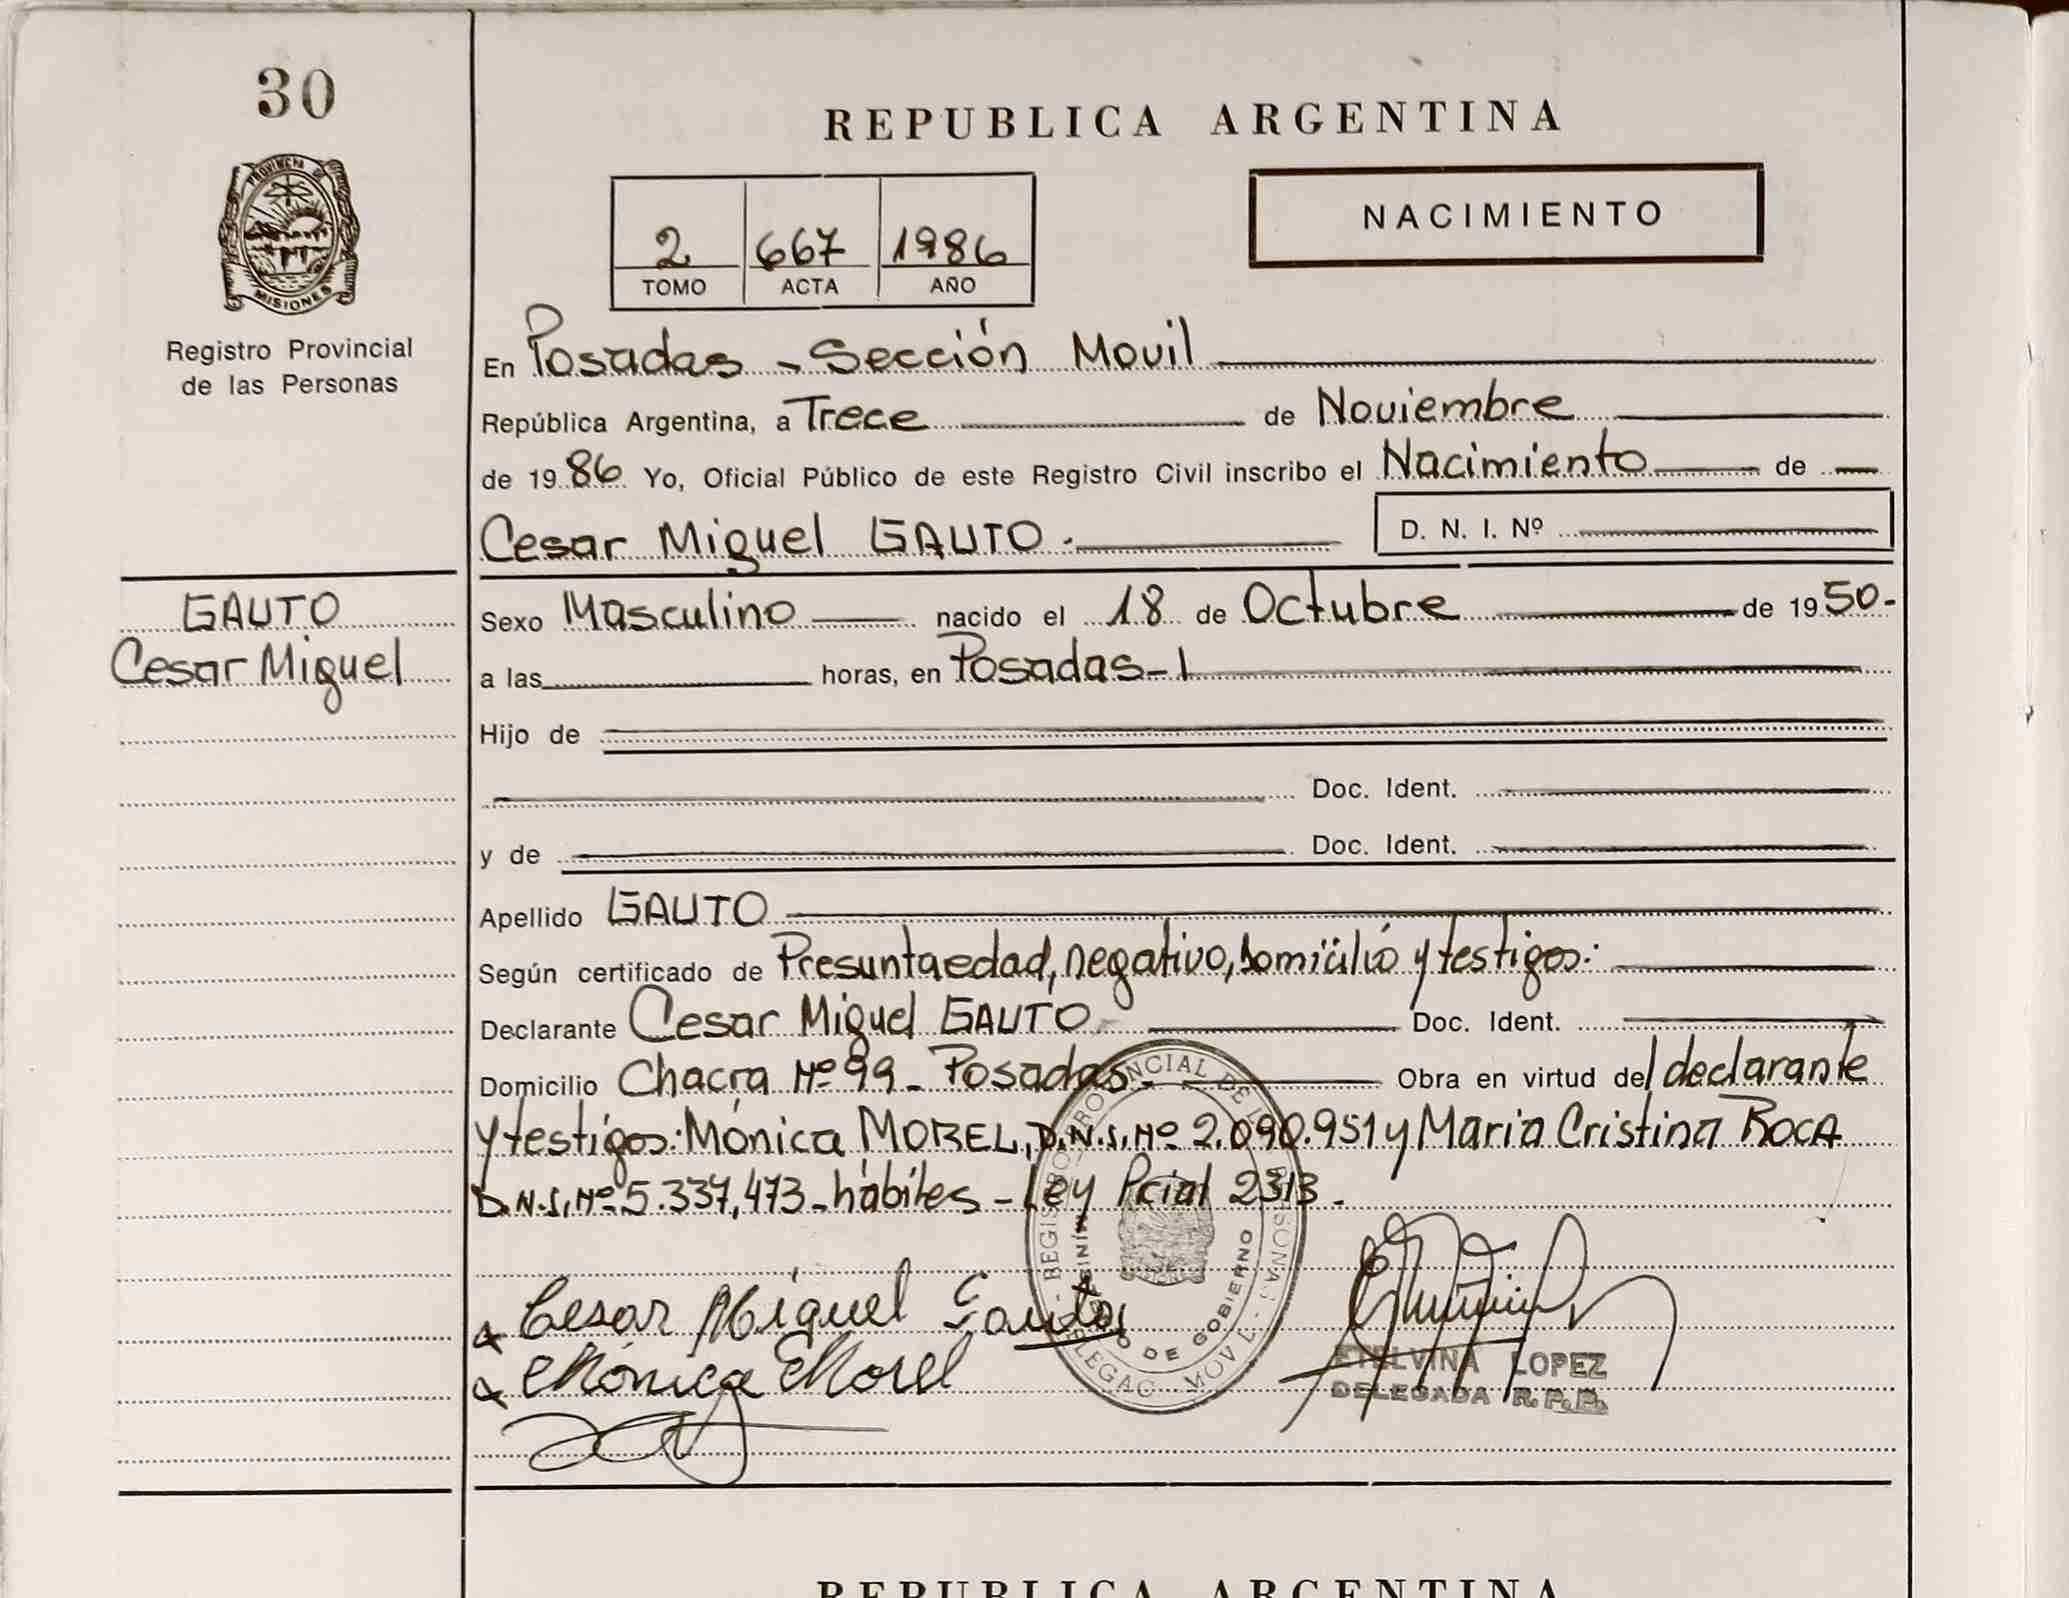 30
PROVINCIA DE
MISIONES
Registro Provincial
de las Personas
REPUBLICA ARGENTINA
2 667 1986
TOMO ACTA AÑO
NACIMIENTO
En Posadas - Sección Movil
República Argentina, a Trece de Noviembre
de 1986 Yo, Oficial Público de este Registro Civil inscribo el Nacimiento de
Cesar Miguel GAUTO.- D. N. I. Nº
GAUTO
Cesar Miguel
Sexo Masculino nacido el 18 de Octubre de 1950-
a las horas, en Posadas-
Hijo de
Doc. Ident.
y de Doc. Ident.
Apellido GAUTO
Según certificado de Presunta edad, negativo, domicilio y testigos:
Declarante Cesar Miguel GAUTO Doc. Ident.
Domicilio Chacra Nº 99 - Posadas.- Obra en virtud del declarante
y testigos: Mónica MOREL, D.N.I. Nº 2.090.951 y Maria Cristina ROCA
D.N.I. Nº 5.337,473 - hábiles - Ley Pcial 2313.
Cesar Miguel Gauto
Mónica Morel
DE GOBIERNO
ETELVINA LOPEZ
DELEGADA R.P.P.
REPUBLICA ARGENTINA